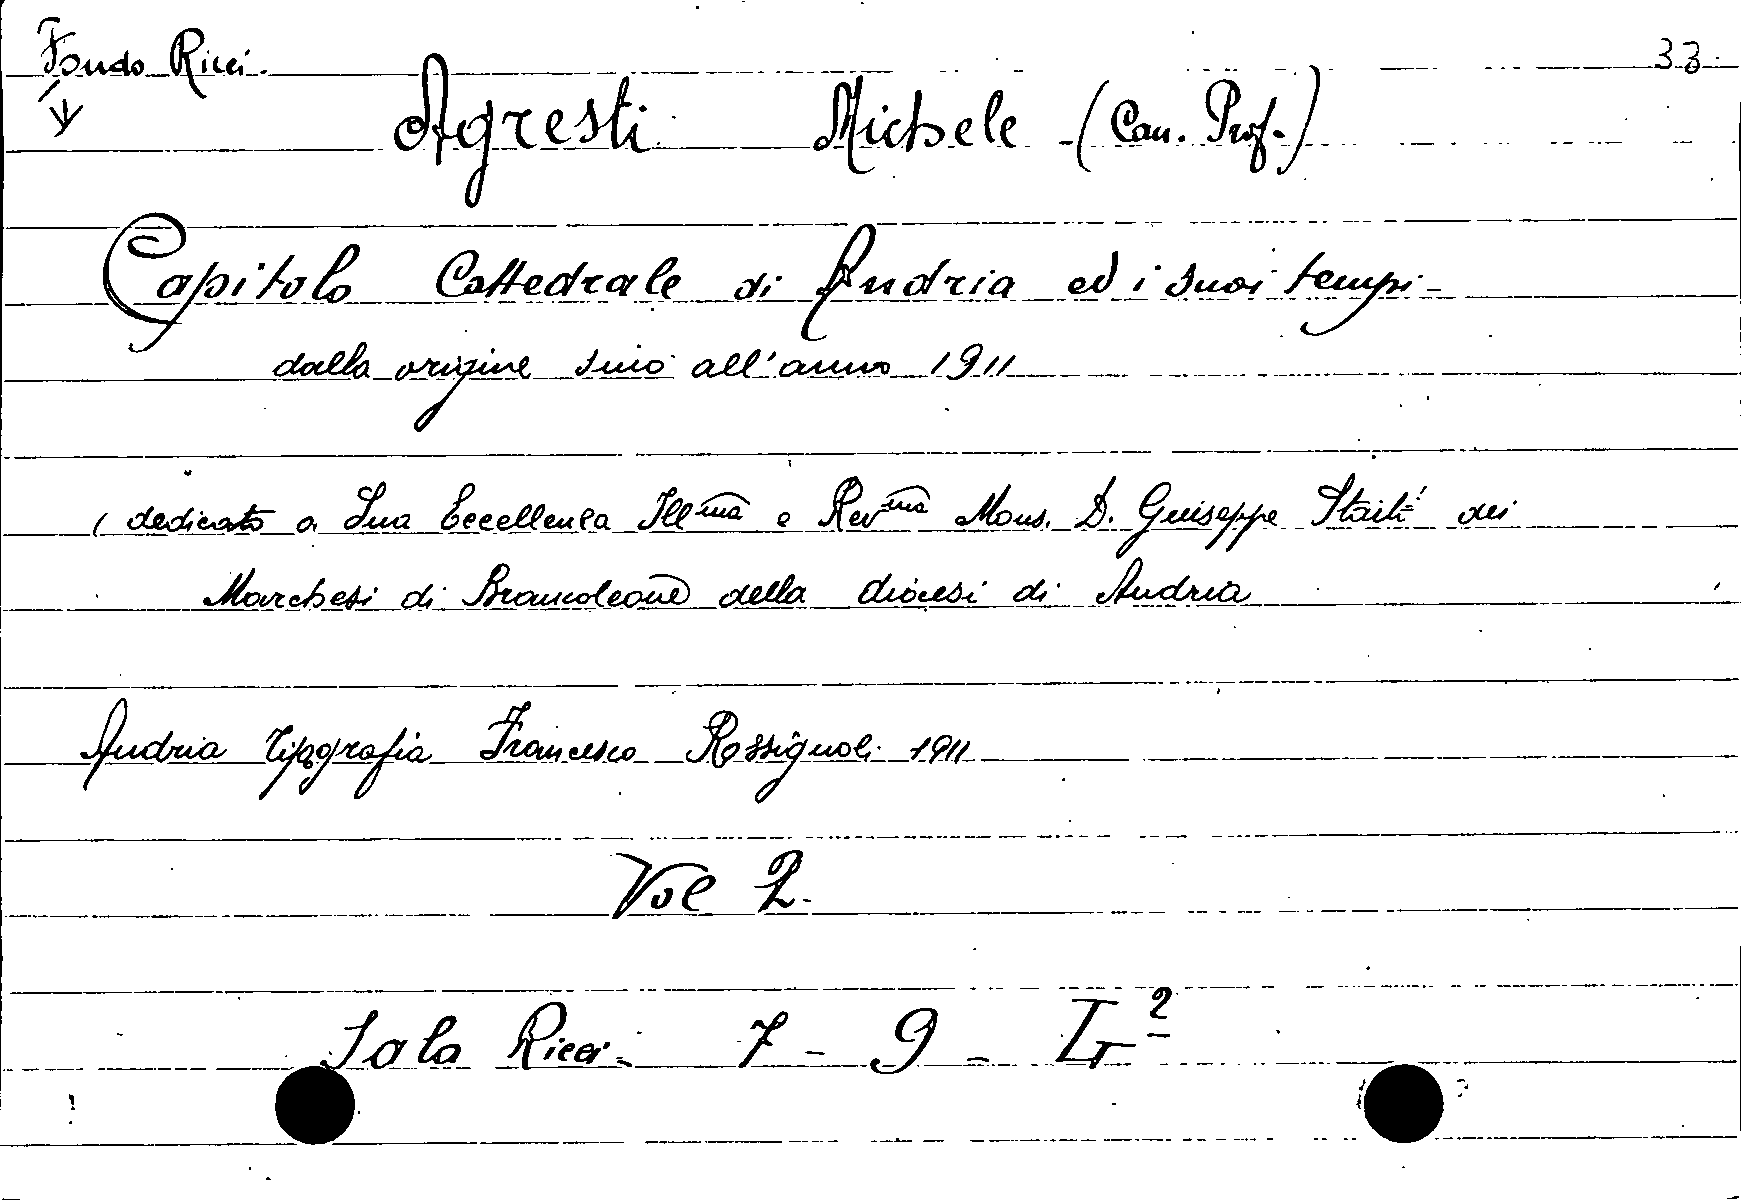 Fondo Ricci. 33
Agresti Michele (Can. Prof.)
Capitolo Cattedrale di Andria ed i suoi tempi -
dalla origine sino all'anno 1911
( dedicato a Sua Eccellenza Illma e Revma Mons. D. Giuseppe Staiti dei
Marchesi di Brancoleone della diocesi di Andria
Andria Tipografia Francesco Rossignoli 1911
Vol 2.
Sala Ricci - 7 - 9 -